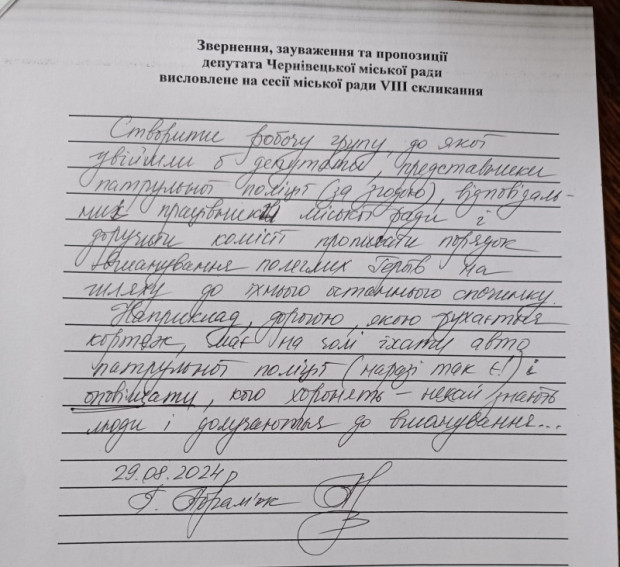 Звернення, зауваження та пропозиції
депутата Чернівецької міської ради
висловлене на сесії міської ради VIII скликання
Створити робочу групу, до якої
увійшли б депутати, представники
патрульної поліції (за згодою), відповідаль-
них працівників міської ради і
доручити комісії прописати порядок
вшанування полеглих Героїв на
шляху до їхнього останнього спочинку.
Наприклад, дорогою, якою рухається
кортеж, має на чолі їхати авто
патрульної поліції (наразі так є!) і
оповіщати, кого хоронять – нехай знають
люди і долучаються до вшанування...
29.08.2024р
Г. Абрам'юк